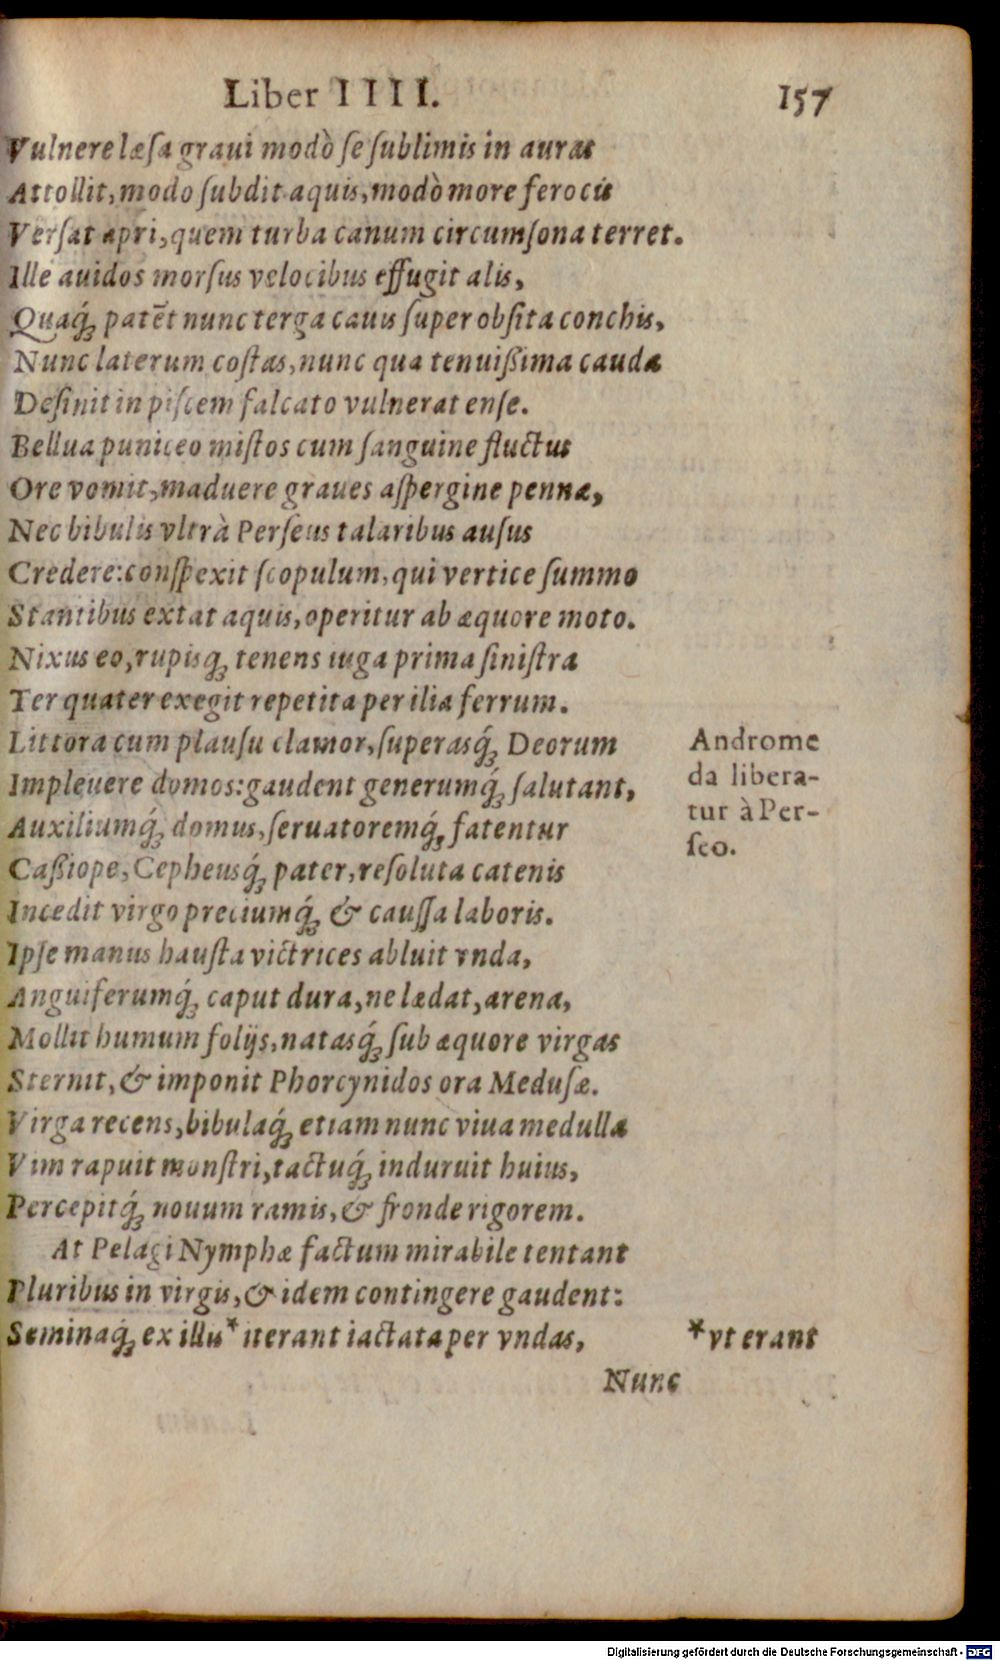 Liber IIII. 157
Vulnere læſa graui modò ſe ſublimis in auras
Attollit, modo ſubdit aquis, modò more ferocis
Verſat apri, quem turba canum circumſona terret.
Ille auidos morſus velocibus effugit alis,
Quaq́; patēt nunc terga cauis ſuper obſita conchis,
Nunc laterum coſtas, nunc qua tenuißima cauda
Deſinit in piſcem falcato vulnerat enſe.
Bellua puniceo miſtos cum ſanguine fluctus
Ore vomit, maduere graues aſpergine pennæ,
Nec bibulis vltrà Perſeus talaribus auſus
Credere: conſpexit ſcopulum, qui vertice ſummo
Stantibus extat aquis, operitur ab æquore moto.
Nixus eo, rupisq́; tenens iuga prima ſiniſtra
Ter quater exegit repetita per ilia ferrum.
Littora cum plauſu clamor, ſuperasq́; Deorum
Impleuere domos: gaudent generumq́; ſalutant,
Auxiliumq́; domus, ſeruatoremq́; fatentur
Caßiope, Cepheusq́; pater, reſoluta catenis
Incedit virgo preciumq́; & cauſſa laboris.
Ipſe manus hauſta victrices abluit vnda,
Anguiferumq́; caput dura, ne lædat, arena,
Mollit humum folijs, natasq́; ſub æquore virgas
Sternit, & imponit Phorcynidos ora Meduſæ.
Virga recens, bibulaq́; etiam nunc viua medulla
Vim rapuit monſtri, tactuq́; induruit huius,
Percepitq́; nouum ramis, & fronde rigorem.
At Pelagi Nymphæ factum mirabile tentant
Pluribus in virgis, & idem contingere gaudent:
Seminaq́; ex illis* iterant iactata per vndas,
Nunc
Androme
da libera-
tur à Per-
ſeo.
*vt erant
Digitalisierung gefördert durch die Deutsche Forschungsgemeinschaft - DFG